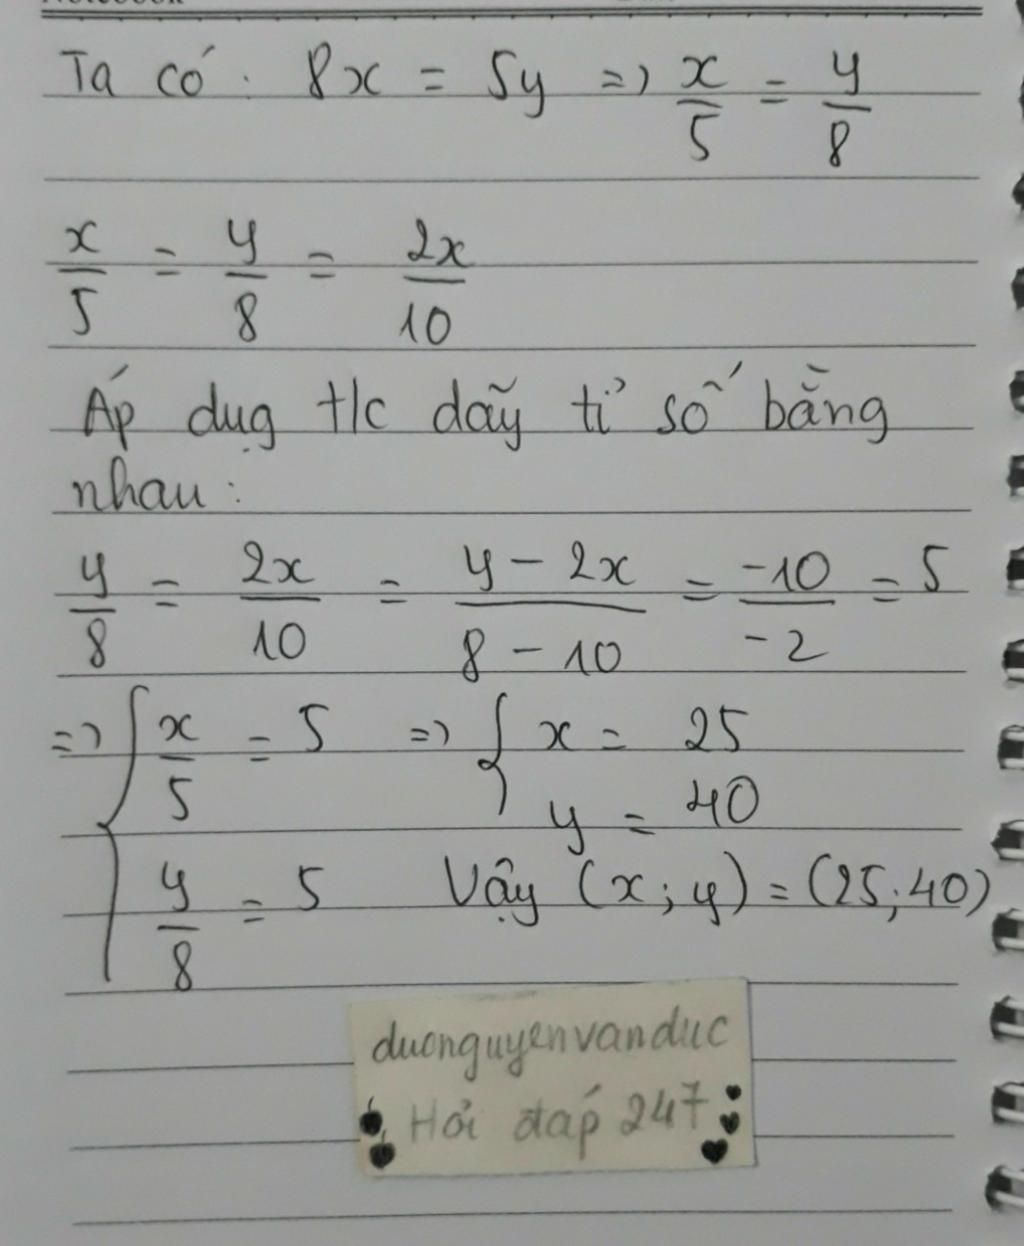 Ta có: 8x = 5y => x/5 = y/8
x/5 = y/8 = 2x/10
Áp dụg t/c dãy tỉ số bằng
nhau:
y/8 = 2x/10 = y - 2x/8 - 10 = -10/-2 = 5
=> { x/5 = 5 => { x = 25
y = 40
y/8 = 5 Vậy (x; y) = (25; 40)
duonguyenvanduc
Hỏi đáp 247